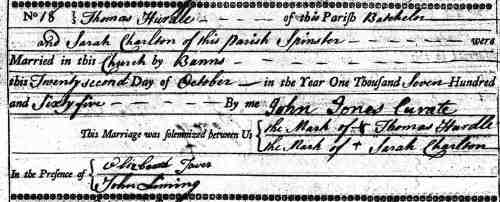 No 18 } Thomas Hurdle — of this Parish Batchelor
and Sarah Charlton of this Parish Spinster — — — were
Married in this Church by Banns — — — —
this Twenty second Day of October — in the Year One Thousand Seven Hundred
and Sixty five — — — — By me John Jones Curate
This Marriage was solemnized between Us { the Mark of + Thomas Hurdle
the Mark of + Sarah Charlton
In the Presence of {
John